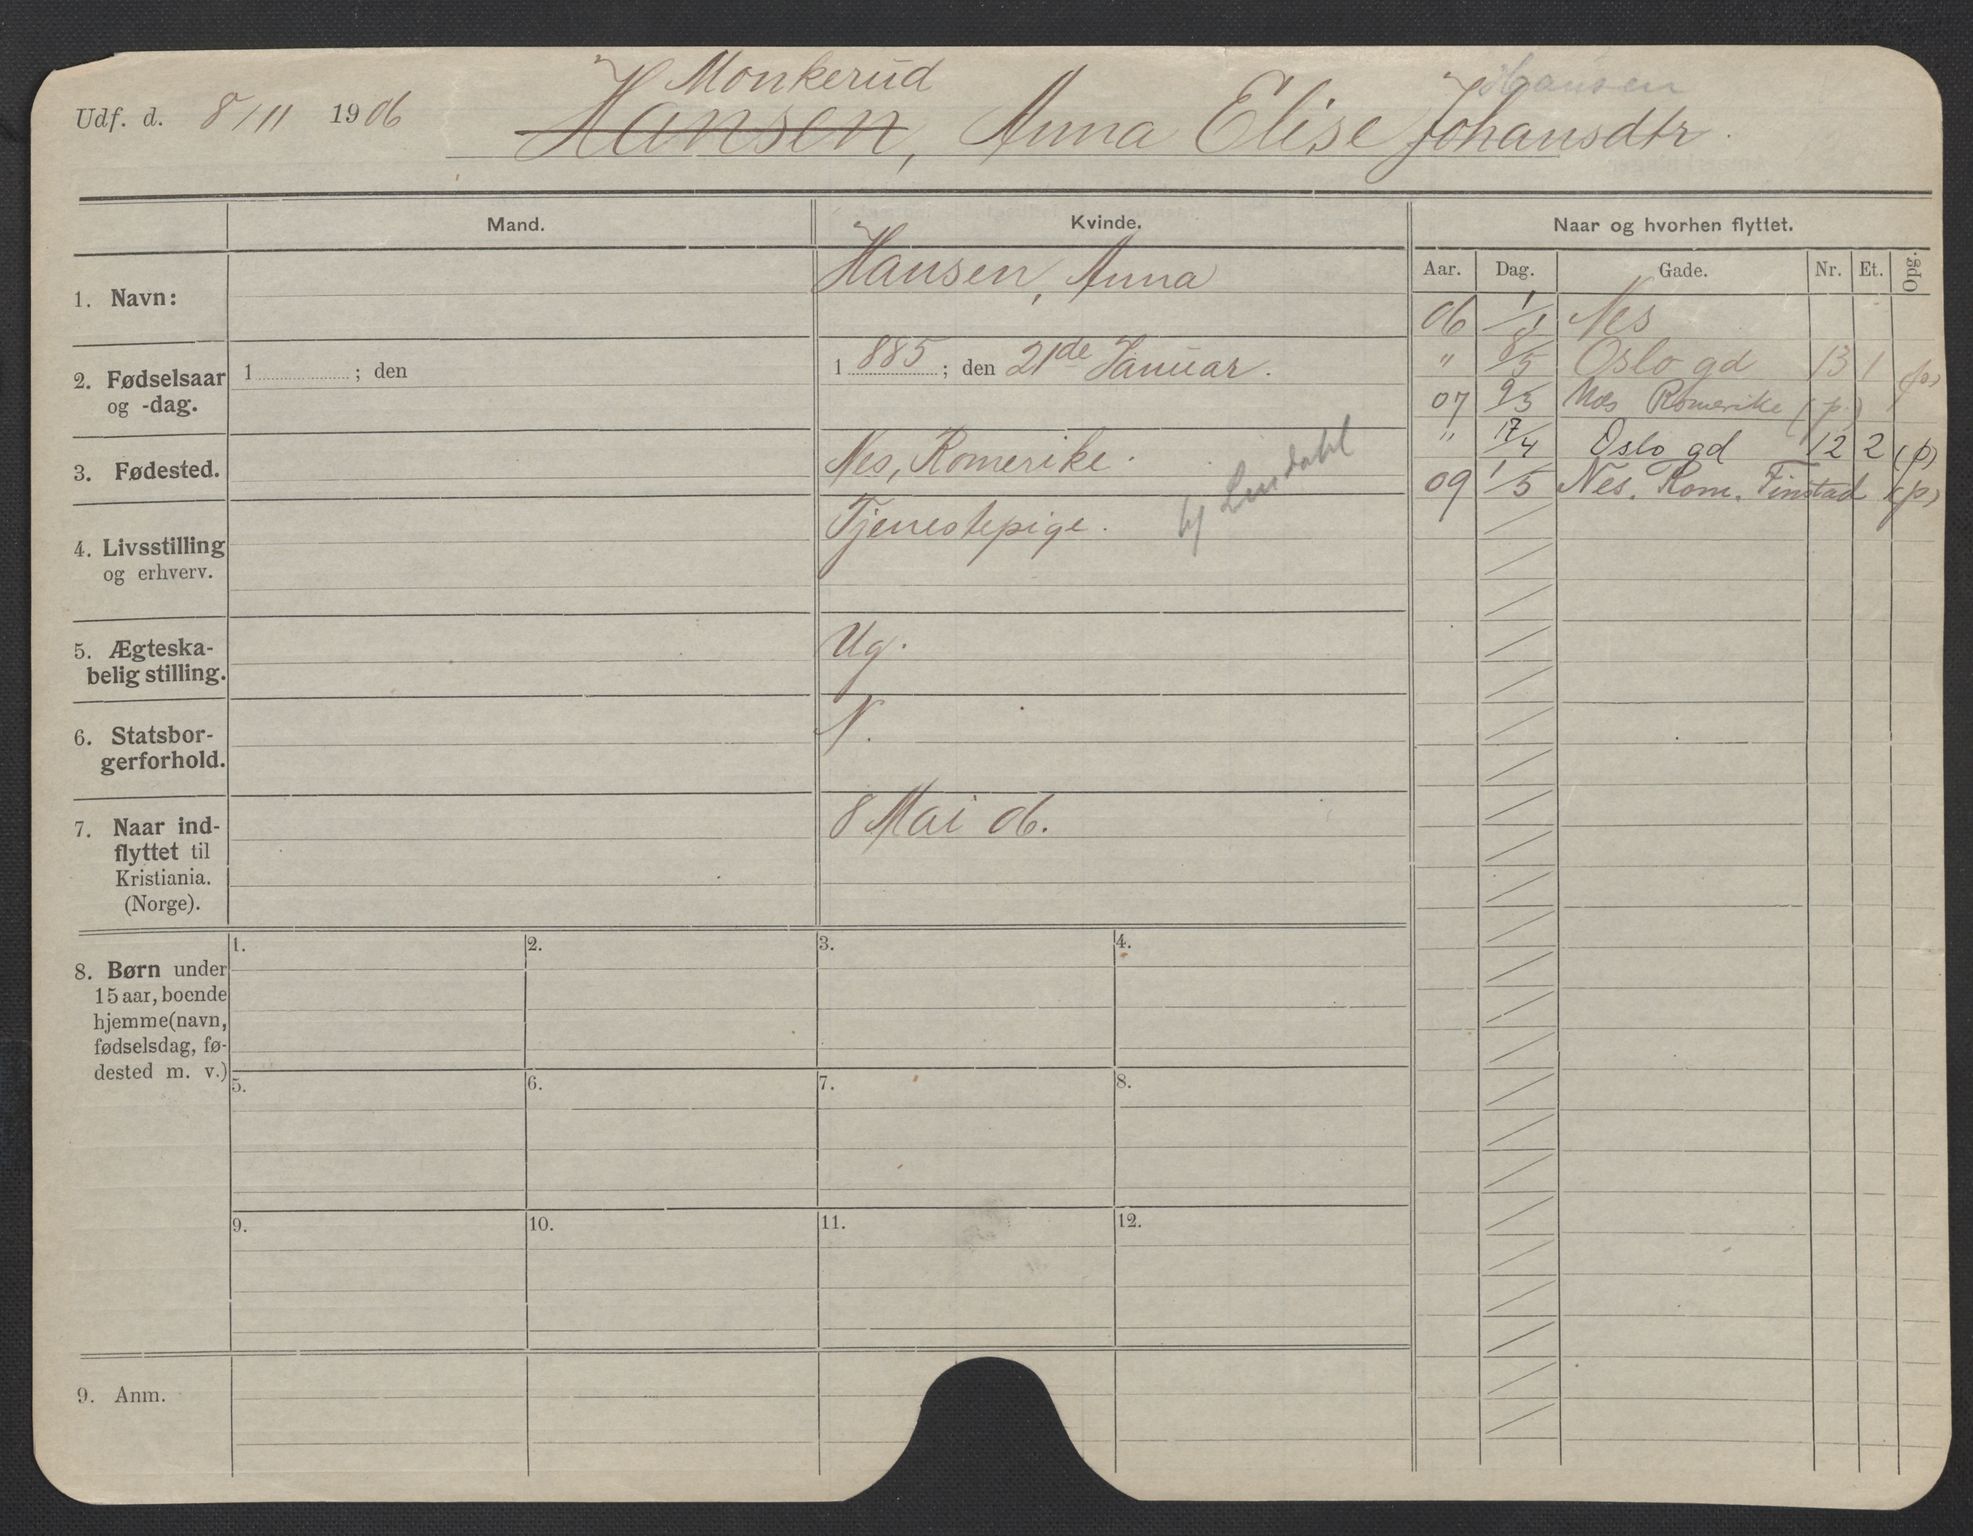 Monkerud
Udf. d. 8/11 1906 Hansen, Anna Elise Johansdtr.
Mand.
Kvinde.
Naar og hvorhen flyttet.
Aar. Dag. Gade. Nr. Et. Opg.
1. Navn: Hansen, Anna
2. Fødselsaar
og -dag.
1 ; den
1885; den 21de Januar.
3. Fødested. Nes, Romerike.
4. Livsstilling
og erhverv.
Tjenestepige. hj Lindahl
5. Ægteska-
belig stilling.
Ug.
6. Statsbor-
gerforhold.
N.
7. Naar ind-
flyttet til
Kristiania.
(Norge).
8 Mai 06.
06 1/1 Nes
" 8/5 Oslo gd 13 1 (p)
07 9/3 Nes Romerike (p.)
" 17/4 Oslo gd 12 2 (p)
09 1/5 Nes. Rom. Finstad (p)
8. Børn under
15 aar, boende
hjemme (navn,
fødselsdag, fø-
dested m. v.)
1. 2. 3. 4.
5. 6. 7. 8.
9. 10. 11. 12.
9. Anm.